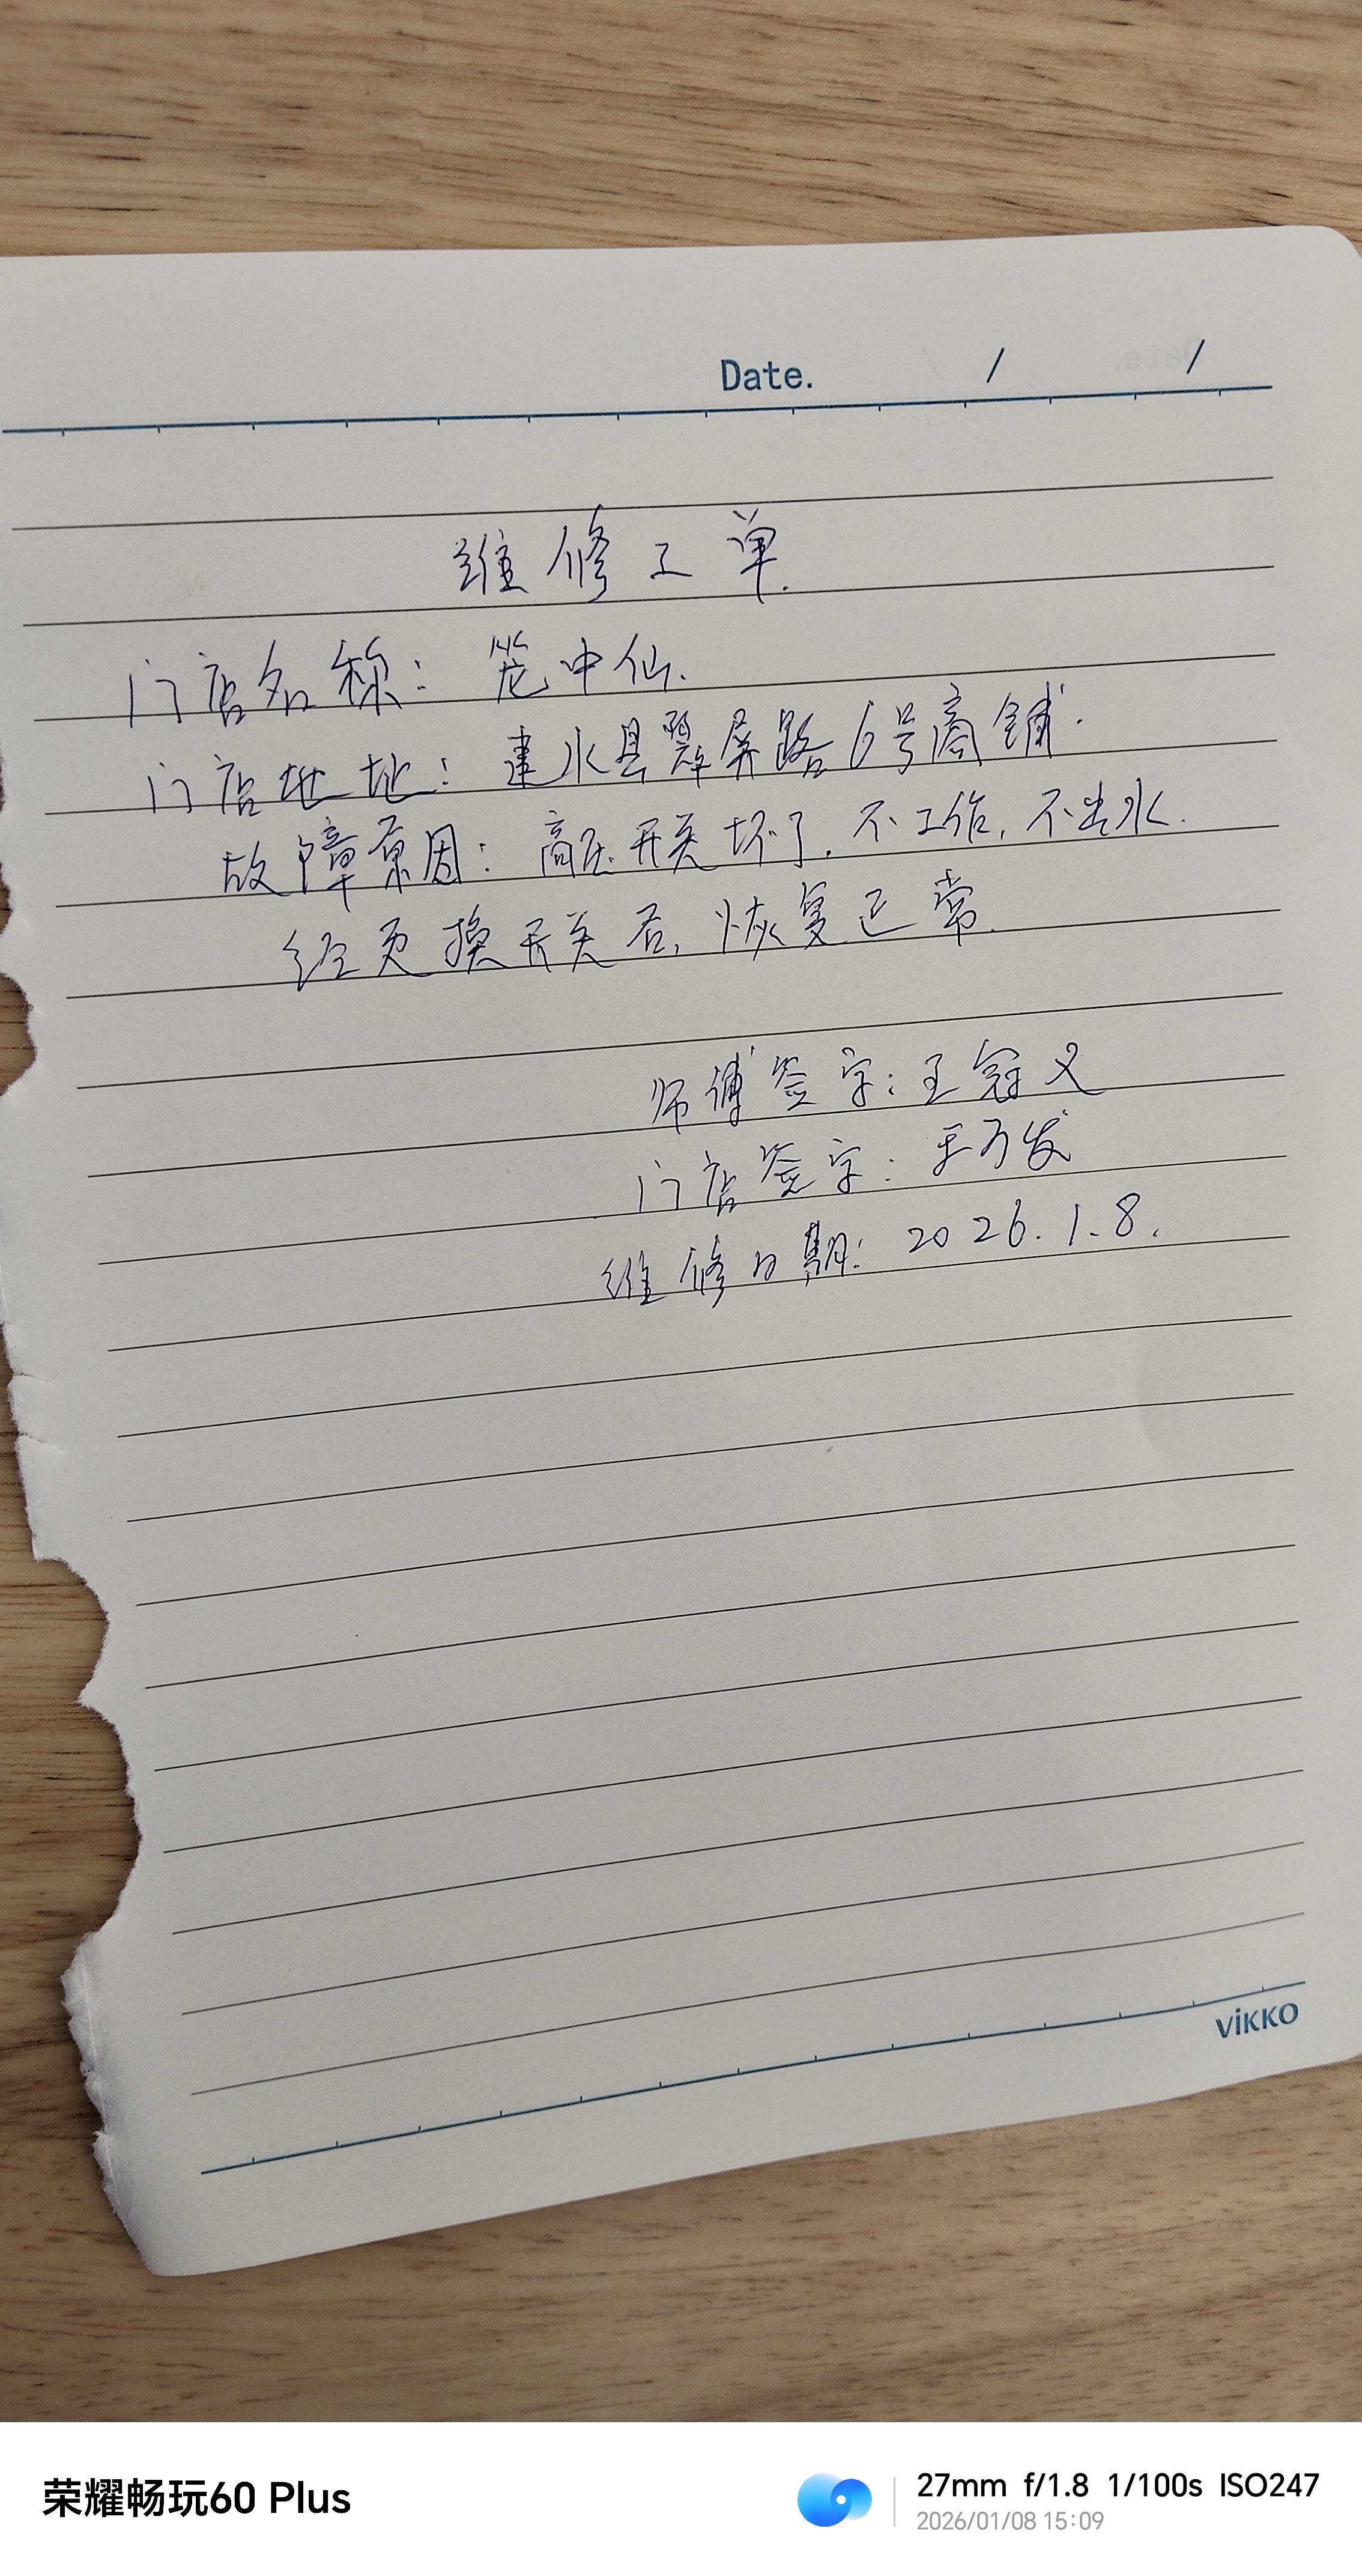 Date. / /
维修工单.
门店名称: 笼中仙.
门店地址: 建水县翠屏路6号商铺.
故障原因: 高压开关坏了, 不工作, 不出水.
经更换开关后, 恢复正常.
师傅签字: 王冠义
门店签字: 王万发
维修日期: 2026.1.8.
ViKKO
荣耀畅玩60 Plus
27mm f/1.8 1/100s ISO247
2026/01/08 15:09